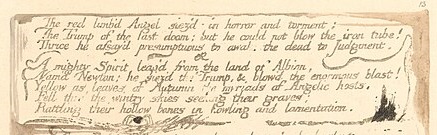 13
The red limb'd Angel siez'd in horror and torment;
The Trump of the last doom; but he could not blow the iron tube!
Thrice he assay'd presumptuous to awake the dead to Judgment.
A mighty Spirit leap'd from the land of Albion,
Nam'd Newton; he siez'd the Trump, & blow'd the enormous blast!
Yellow as leaves of Autumn the myriads of Angelic hosts,
Fell thro' the wintry skies seeking their graves;
Rattling their hollow bones in howling and lamentation.